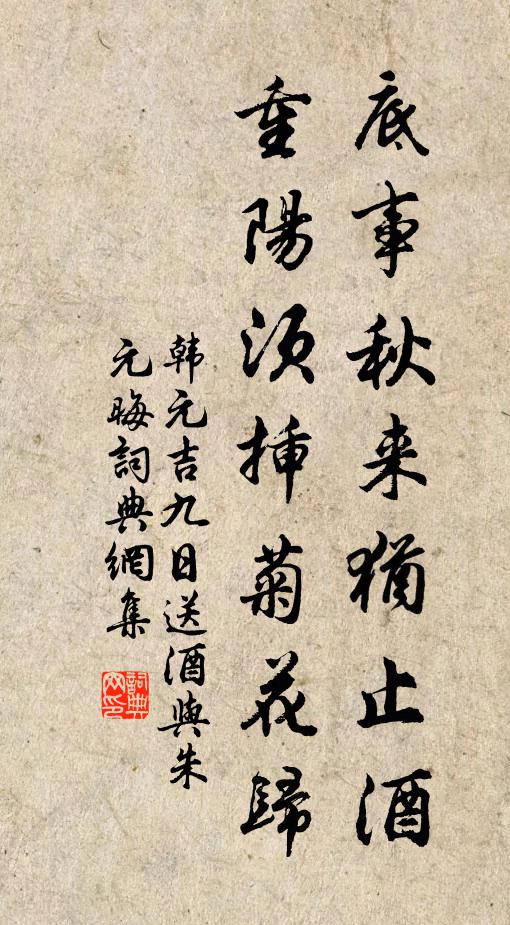 底事秋来猶止酒
重陽須插菊花歸
韩元吉九日送酒與朱
元晦詞典網集
詞典網印